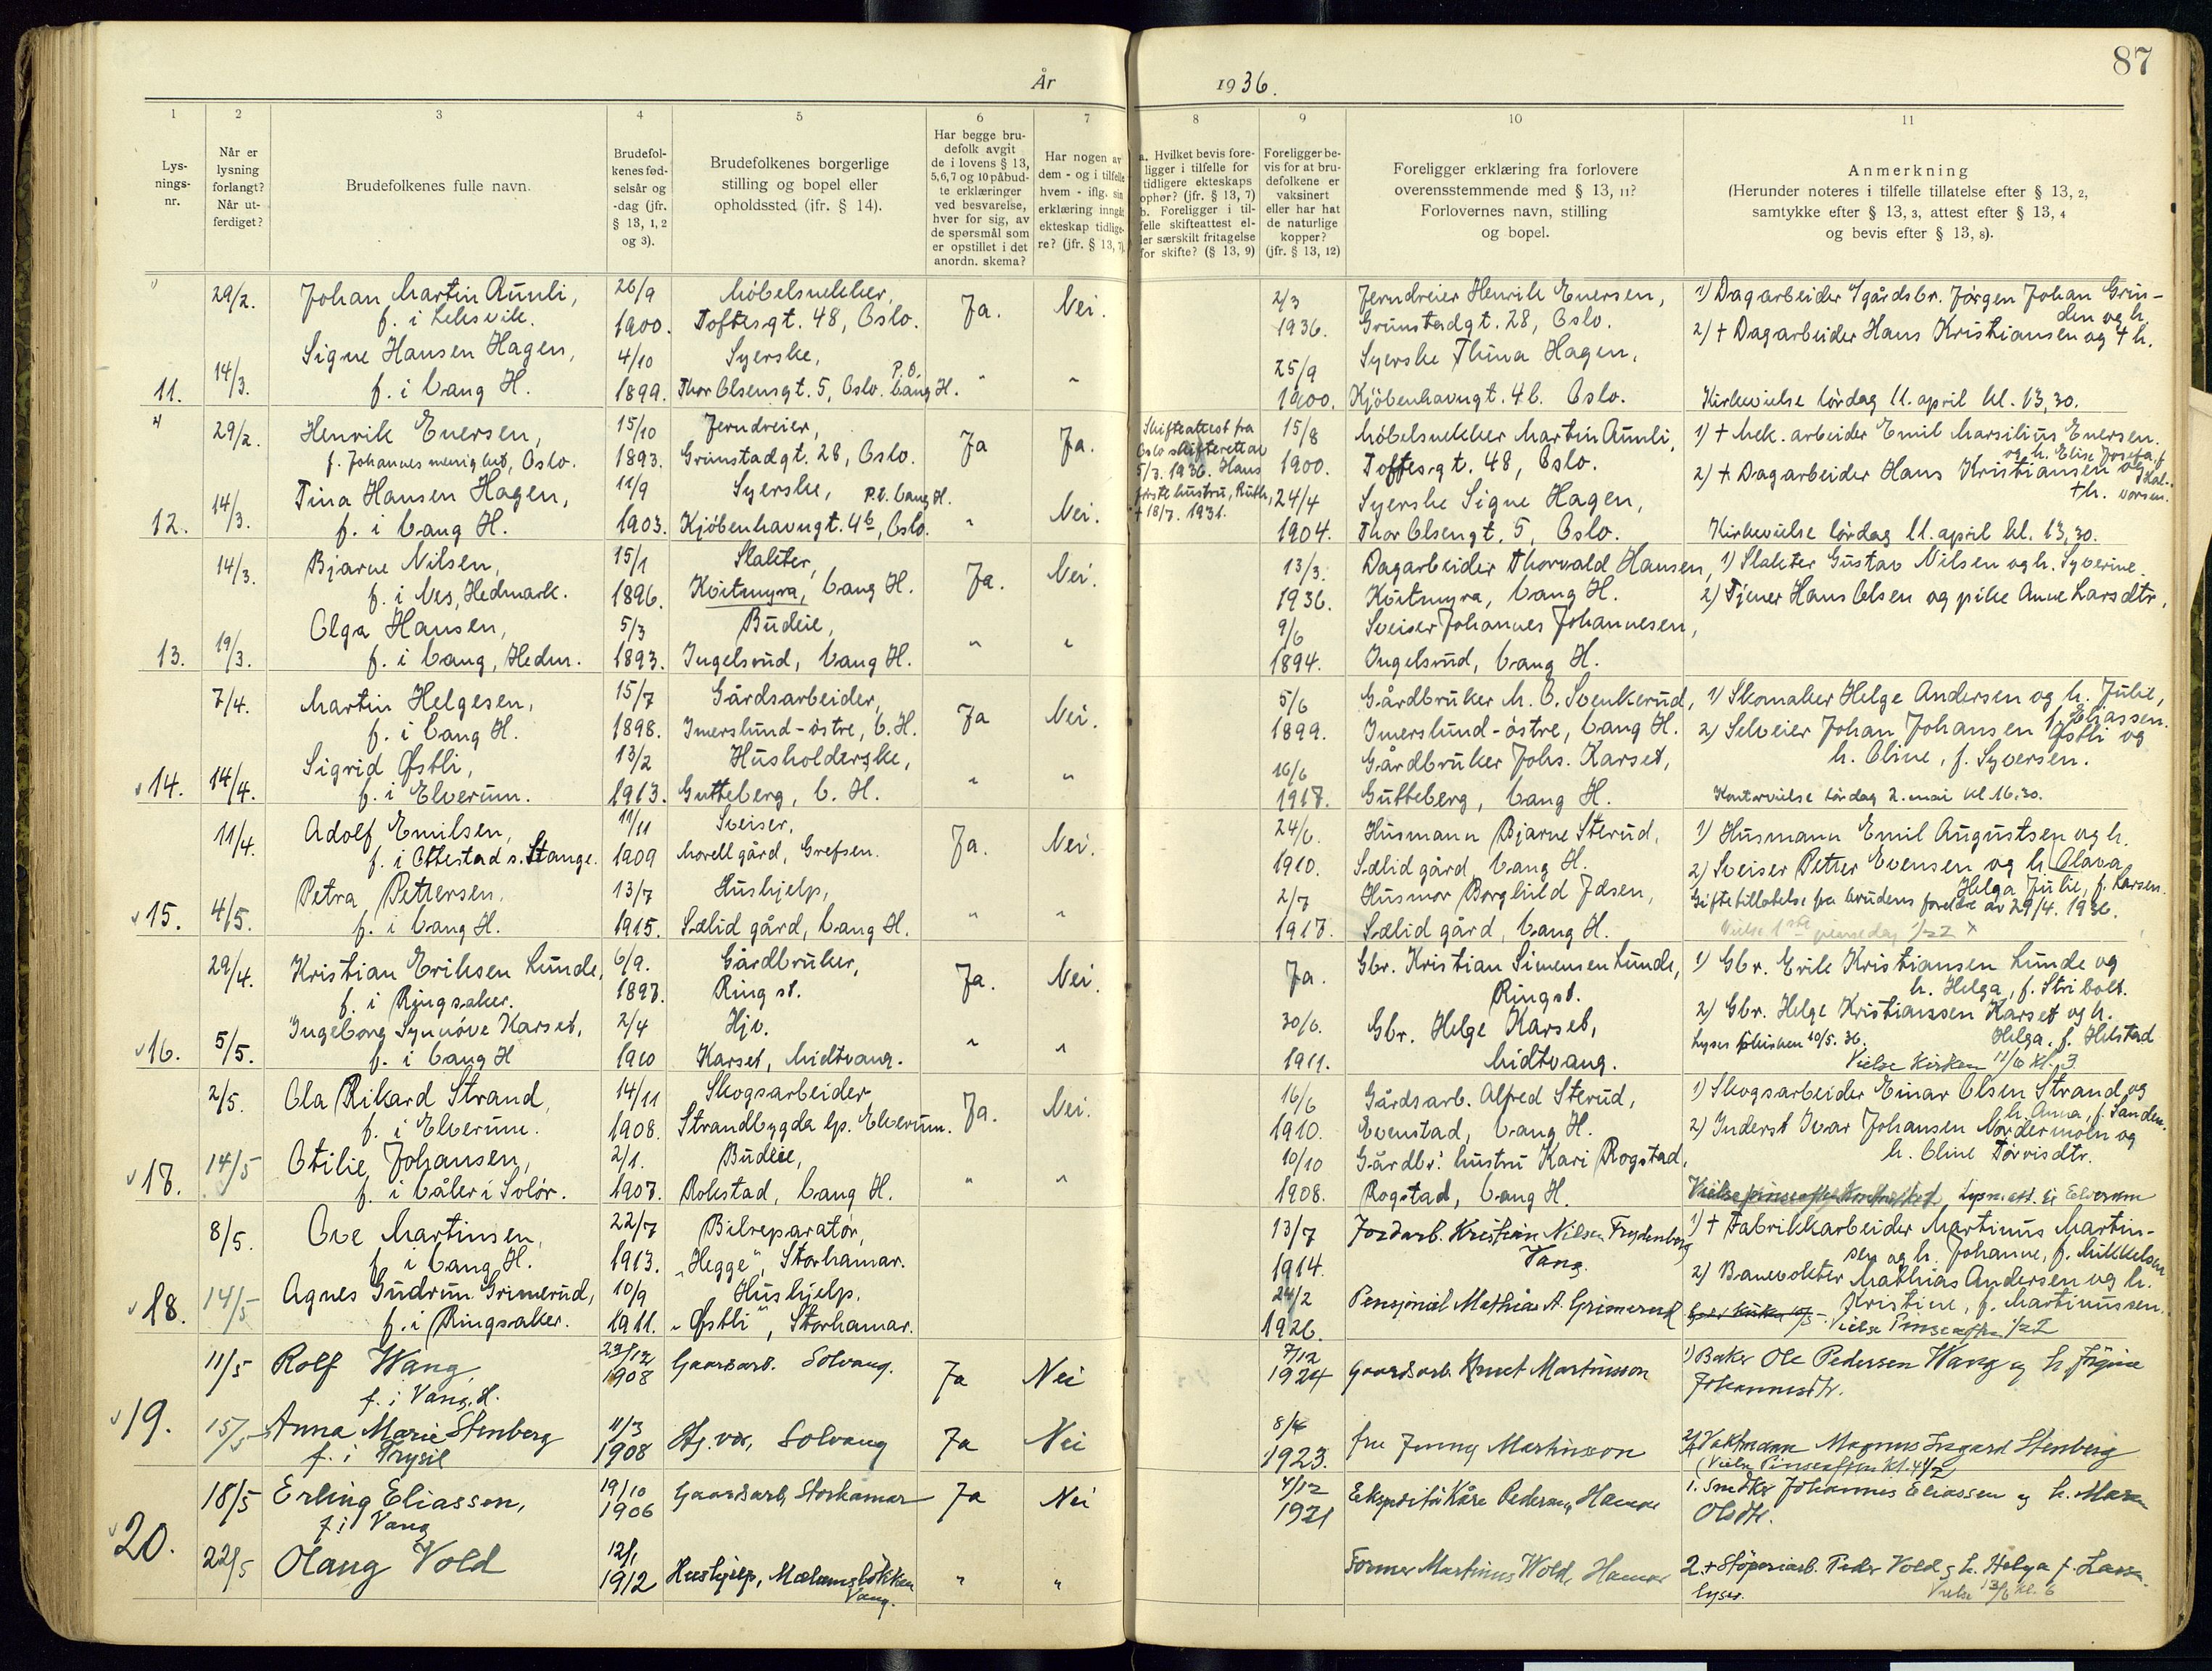 87
År 1936.
1 2 3 4 5 6 7 8 9 10 11
Lys-
nings-
nr.
Når er
lysning
forlangt?
Når ut-
ferdiget?
Brudefolkenes fulle navn.
Brudefol-
kenes fød-
selsår og
-dag (jfr.
§ 13, 1, 2
og 3).
Brudefolkenes borgerlige
stilling og bopel eller
opholdssted (jfr. § 14).
Har begge bru-
defolk avgit
de i lovens § 13,
5,6,7 og 10 påbud-
te erklæringer
ved besvarelse,
hver for sig, av
de spørsmål som
er opstillet i det
anordn. skema?
Har nogen av
dem - og i tilfelle
hvem - iflg. sin
erklæring inngåt
ekteskap tidlige-
re? (jfr. § 13, 7)
a. Hvilket bevis fore-
ligger i tilfelle for
tidligere ekteskaps
ophør? (jfr. § 13, 7)
b. Foreligger i til-
felle skifteattest el-
ler særskilt fritagelse
for skifte? (§ 13, 9)
Foreligger be-
vis for at bru-
defolkene er
vaksinert
eller har hat
de naturlige
kopper?
(jfr. § 13, 12)
Foreligger erklæring fra forlovere
overensstemmende med § 13, 11?
Forlovernes navn, stilling
og bopel.
Anmerkning
(Herunder noteres i tilfelle tillatelse efter § 13, 2,
samtykke efter § 13, 3, attest efter § 13, 4
og bevis efter § 13, 8).
29/2. Johan Martin Aunli, 26/9 Møbelsnekker, Ja. Nei. 2/3 Jerndreier Henrik Eversen, 1) Dagarbeider /gårdsbr. Jørgen Johan Grin-
den og h.
1900. Toftesgt. 48, Oslo. 1936. Grimstadgt. 28, Oslo. 2) + Dagarbeider Hans Kristiansen og + h.
Signe Hansen Hagen, 4/10 Syerske, 25/9 Syerske Thina Hagen,
11. 14/3. f. i Vang H. 1899. Thor Olsensgt. 5, Oslo. P.t. Vang H. " " 1900. Kjøbenhavngt. 4b. Oslo. Kirkevielse lørdag 11. april kl. 13,30.
29/2. Henrik Eversen, 15/10 Jerndreier, Ja Ja. Skifteattest fra 15/8 Møbelsnekker Martin Aunli, 1) + Mek. arbeider Emil Marsilius Eversen.
og h. Elise Josefa f.
f. Johannes menighet, Oslo. 1893. Grimstadgt. 28, Oslo. Oslo skifterett av 5/3. 1936. Hans 1900. Toftesgt. 48, Oslo. 2) + Dagarbeider Hans Kristiansen og
+ h. Hal-
vorsen.
Tina Hansen Hagen, 11/9 Syerske, P.t. Vang H. Nei. første hustru, Ruth, + 18/7. 1931. 24/4 Syerske Signe Hagen,
12. 14/3. f. i Vang H. 1903. Kjøbenhavngt. 4b, Oslo. " 1904. Thor Olsengt. 5, Oslo. Kirkevielse lørdag 11. april kl. 13,30.
14/3. Bjarne Nilsen, 15/1 Slakter, Ja. Nei. 13/3. Dagarbeider Thorvald Hansen, 1) Slakter Gustav Nilsen og h. Syverine.
f. i Nes, Hedmark. 1896. Kvitmyra, Vang H. 1936. Kvitmyra, Vang H. 2) Tjener Hans Olsen og pike Anne Larsdtr,
Olga Hansen, 5/3 Budeie, 9/6 Sveiser Johannes Johannesen,
13. 19/3. f. i Vang, Hedm. 1893. Ingelsrud, Vang H. " " 1894. Ingelsrud, Vang H.
7/4. Martin Helgesen, 15/7 Gårdsarbeider, Ja Nei. 5/6 Gårdbruker M. O. Svenkerud, 1) Skomaker Helge Andersen og h. Julie,
f. Eliassen.
f. i Vang H. 1898. Imerslund-østre, V. H. 1899. Imerslund-østre, Vang H. 2) Selveier Johan Johansen Østli og
Sigrid Østli, 13/2 Husholderske, 16/6 Gårdbruker Johs. Karset, h. Oline, f. Syversen.
14. 14/4. f. i Elverum. 1913. Gutteberg, V. H. " " 1917. Gutteberg, Vang H. Kontorvielse lørdag 2. mai kl 16.30.
11/4. Adolf Emilsen, 11/11 Sveiser, Ja. Nei. 24/6. Husmann Bjarne Sterud, 1) Husmann Emil Augustsen og h.
f. i Ottestad s. Stange. 1909 Morell gård, Grefsen. 1910. Sælid gård, Vang H. 2) Sveiser Petter Evensen og h. Olava
Helga Julie, f. Larsen.
Petra Pettersen, 13/7 Hushjelp, 2/7 Husmor Borghild Jdsen, Giftetillatelse fra brudens foreldre av 29/4. 1936.
15. 4/5. f. i Vang H. 1915. Sælid gård, Vang H. " " 1917. Sælid gård, Vang H. Vielse 1ste pinsedag
29/4. Kristian Eriksen Lunde, 6/9. Gårdbruker, Ja. Nei. Ja. Gbr. Kristian Simensen Lunde, 1) Gbr. Erik Kristiansen Lunde og
f. i Ringsaker. 1897. Ringst. Ringst. h. Helga, f. Stribolt.
Ingeborg Synnøve Karset, 2/4 Hjv. 30/6. Gbr. Helge Karset, 2) Gbr. Helge Kristianssen Karset og h.
Helga. f. Helstad
16. 5/5. f. i Vang H 1910 Karset, Midtvang. " " 1911. Midtvang. Lyses i kirken 10/5. 36.
Vielse Kirken 11/6 kl. 3
2/5. Ola Rikard Strand, 14/11 Skogsarbeider Ja. Nei. 16/6 Gårdsarb. Alfred Sterud, 1) Skogsarbeider Einar Olsen Strand og
h. Anna, f. Sanden.
f. i Elverum. 1908. Strandbygda lp. Elverum. 1910. Evenstad, Vang H. 2) Inderst Ivar Johansen Nordermoln og
Otilie Johansen, 2/1. Budeie, 10/10 Gårdbr. hustru Kari Rogstad, h. Oline Torvisdtr.
17. 14/5 f. i Våler i Solør. 1907. Rokstad, Vang H. " " 1908. Rogstad, Vang H. Lysn. att. til Elverum
8/5. Ove Martinsen, 22/7 Bilreparatør, 13/7 Jordarb. Kristian Nilsen Frydenberg 1) + Fabrikkarbeider Martinus Martin-
sen og h. Johanne, f. Mikkelsen
f. i Vang H. 1913. „Hegge", Storhamar. 1914. Vang.
Agnes Gudrun Grimerud, 10/9 Hushjelp. 24/2 Pensjonist Mathias A. Grimerud 2) Banevokter Mathias Andersen og h.
Kristine, f. Martinussen.
18. 14/5 f. i Ringsaker. 1911. „Østli", Storhamar. 1926. Vielse Pinseaften
11/5 Rolf Wang, 23/12 Gaardsarb. Solvang. Ja Nei 7/12 Gaardsarb. Knut Martinsson 1) Baker Ole Pedersen Wang og h. Jørgine
f. i Vang, H. 1908 1924 Johannesdtr.
19. 15/5 Anna Marie Stenberg 11/3 Hj. vær, Solvang Ja Nei 8/4 fru Jenny Martinsson 2) Vaktmann Magnus Stenberg
f. i Trysil 1908 1923. (Vielse Pinseaften kl. 4 1/2
18/5 Erling Eliassen, 19/10 Gaardsarb, Storhamar Ja Nei 4/12 Ekspeditør Kåre Pedersen, Hamar 1. Smed Johannes Eliassen og h. Maren
f. i Vang 1906 1921 Olsdtr.
20. 22/5 Olaug Vold 12/1 1912 Hushjelp, Mælumsløkken
Vang. " " Former Martinus Wold, Hamar 2. + Støperiarb. Peder Vold og h. Helga f. Larsen.
Lyses. Vielse 13/6 kl. 6